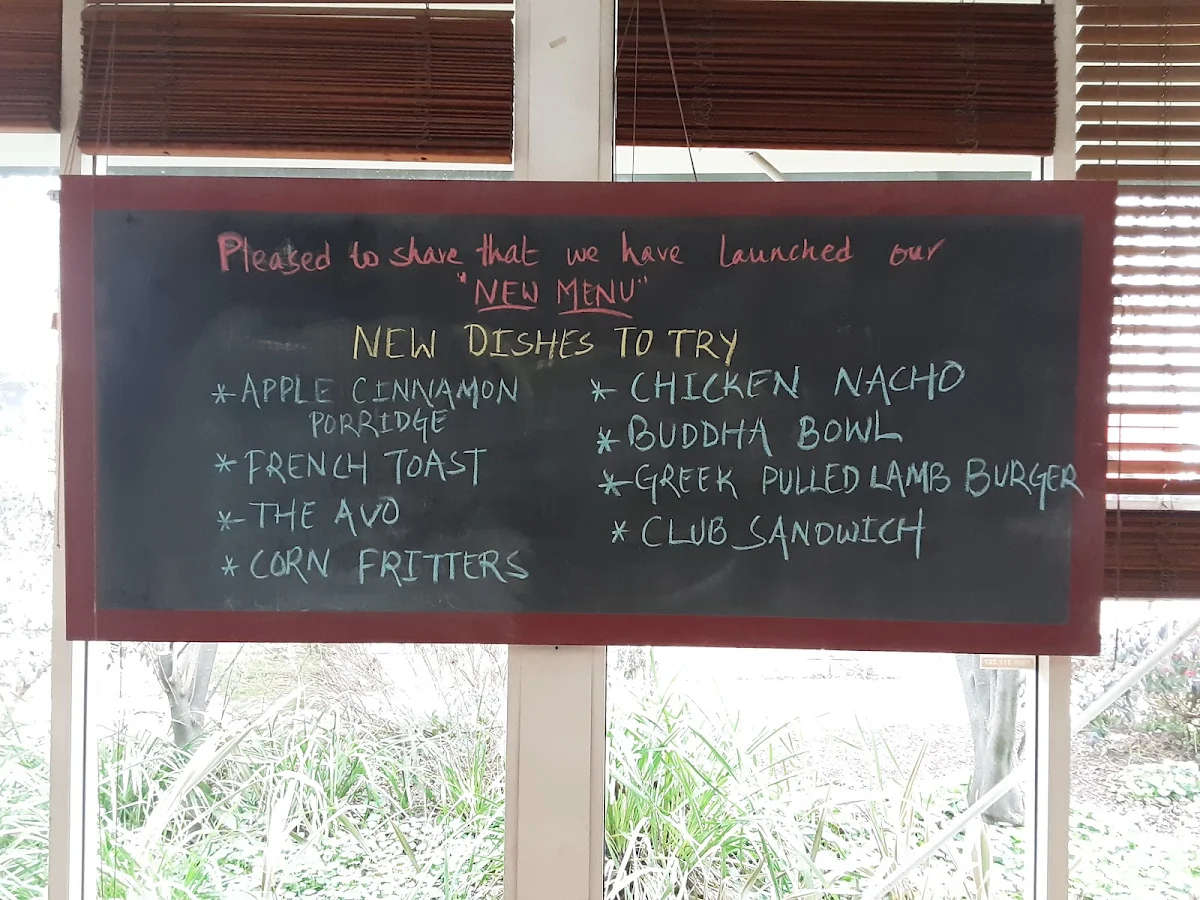 Pleased to share that we have launched our
"NEW MENU"
NEW DISHES TO TRY
* APPLE CINNAMON
PORRIDGE
* FRENCH TOAST
* THE AVO
* CORN FRITTERS
* CHICKEN NACHO
* BUDDHA BOWL
* GREEK PULLED LAMB BURGER
* CLUB SANDWICH